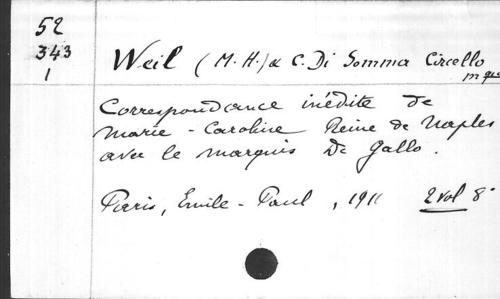 52
343
1
Weil (M.H.) & C. Di Somma Circello
mqis
Correspondance inédite de
Marie-Caroline Reine de Naples
avec le marquis De Gallo.
Paris, Emile-Paul, 1911 2 vol 8°